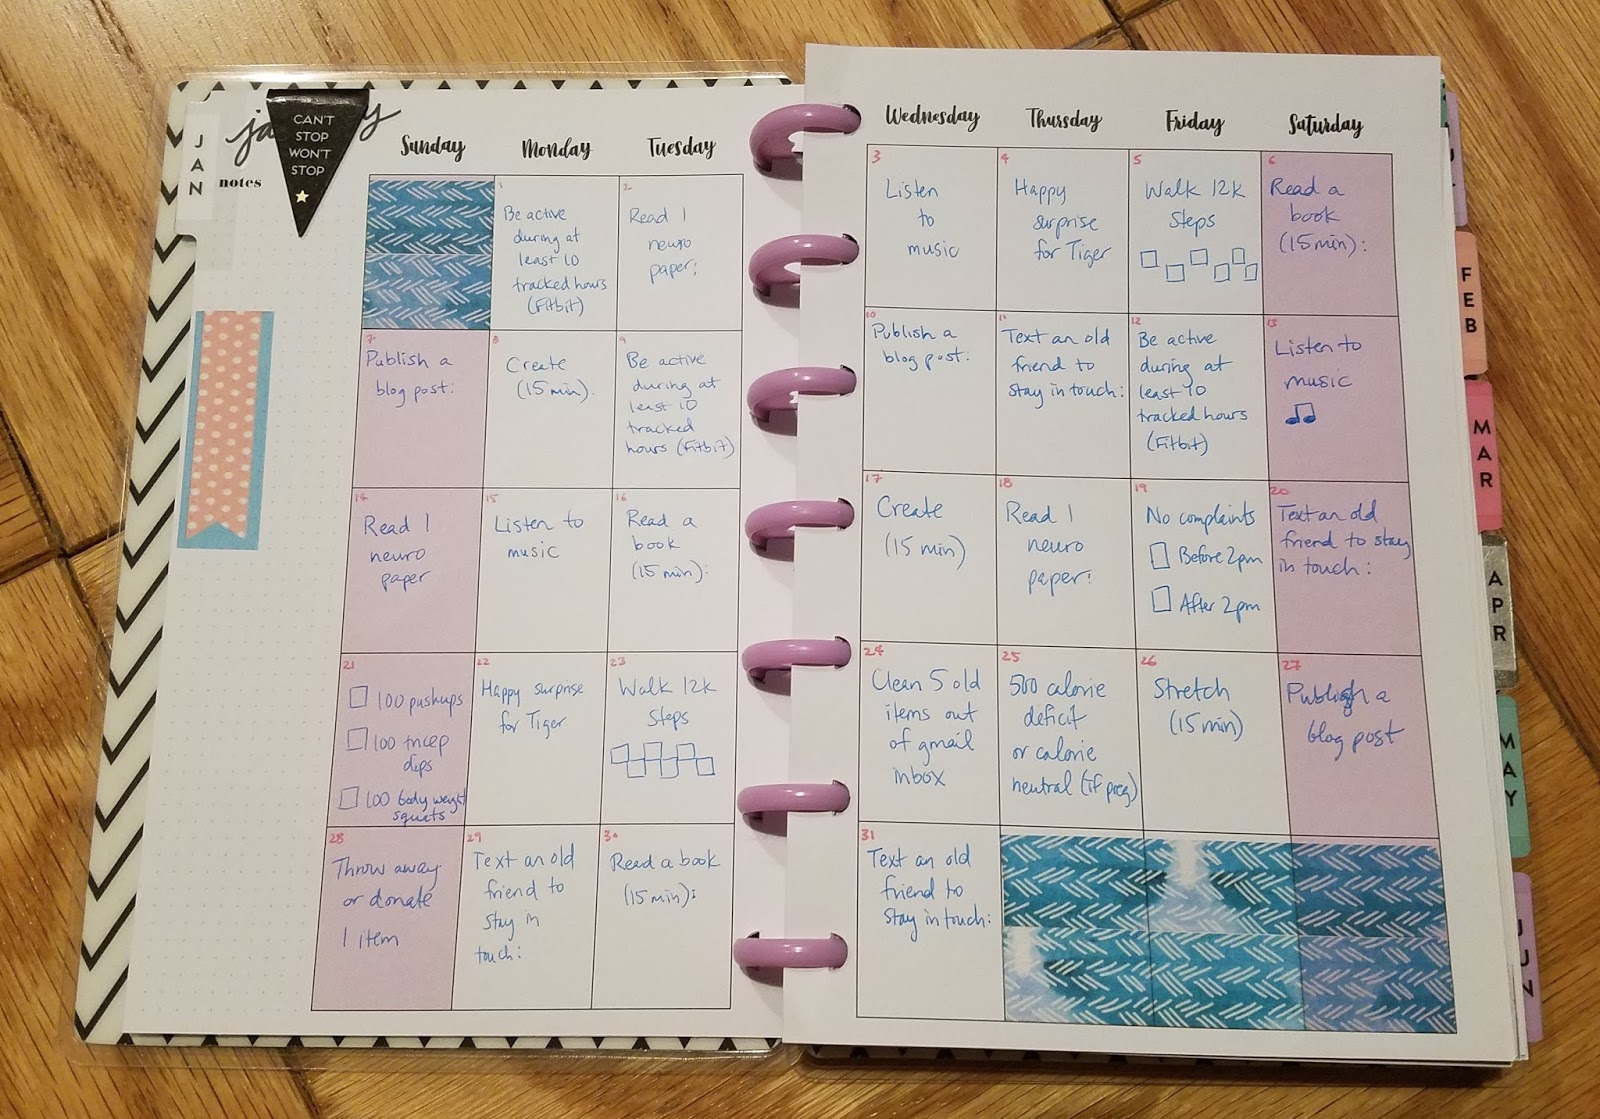 JAN
CAN'T
STOP
WON'T
STOP
notes
Sunday
Monday
Tuesday
Wednesday
Thursday
Friday
Saturday
1
Be active
during at
least 10
tracked hours
(Fitbit)
2
Read 1
neuro
paper:
3
Listen
to
music
4
Happy
surprise
for Tiger
5
Walk 12k
Steps
6
Read a
book
(15 min):
7
Publish a
blog post:
8
Create
(15 min).
9
Be active
during at
least 10
tracked
hours (Fitbit)
10
Publish a
blog post:
11
Text an old
friend to
stay in touch:
12
Be active
during at
least 10
tracked hours
(Fitbit)
13
Listen to
music
14
Read 1
neuro
paper
15
Listen to
music
16
Read a
book
(15 min):
17
Create
(15 min)
18
Read 1
neuro
paper:
19
No complaints
Before 2pm
After 2pm
20
Text an old
friend to stay
in touch:
21
100 pushups
100 tricep
dips
100 body weight
squats
22
Happy surprise
for Tiger
23
Walk 12k
Steps
24
Clean 5 old
items out
of gmail
inbox
25
500 calorie
deficit
or calorie
neutral (if preg)
26
Stretch
(15 min)
27
Publish a
blog post
28
Throw away
or donate
1 item
29
Text an old
friend to
stay in
touch:
30
Read a book
(15 min):
31
Text an old
friend to
stay in touch:
FEB
MAR
APR
MAY
JUN